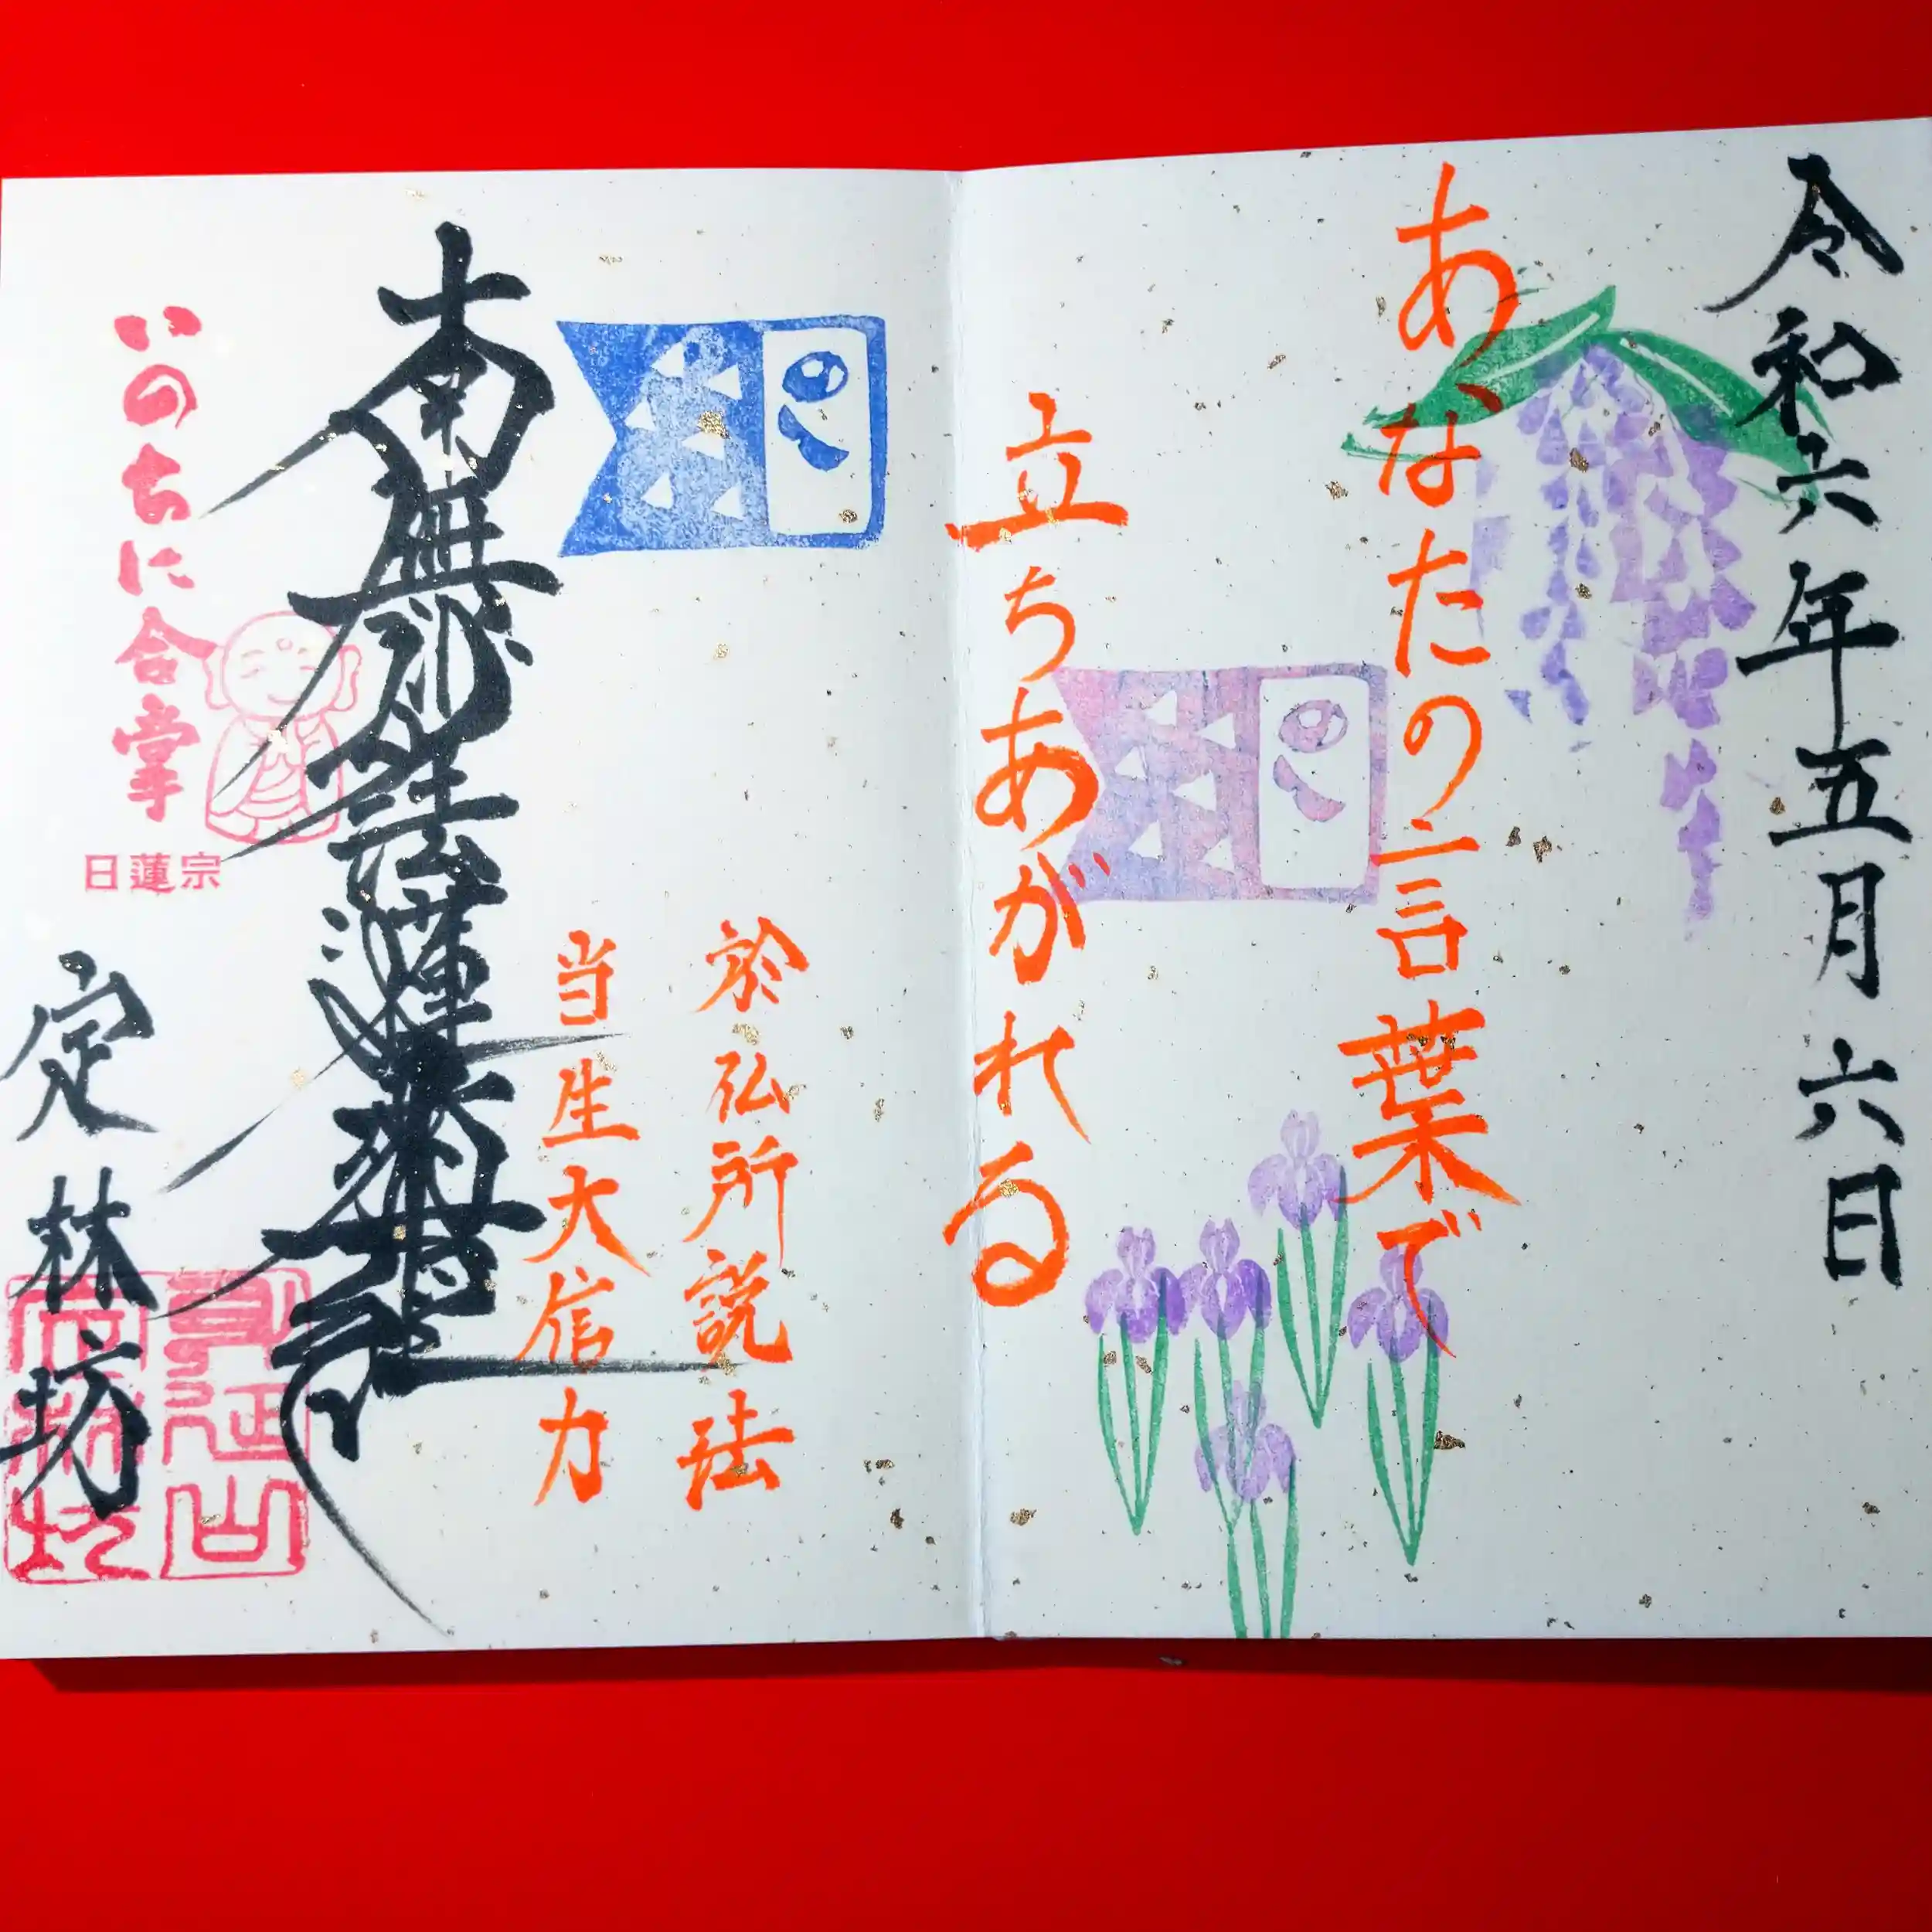 令和六年五月六日
あなたの言葉で
立ちあがれる
於仏所説法
当生大信力
南無妙法蓮華経
いのちに合掌
日蓮宗
定林坊
身延山
定林坊